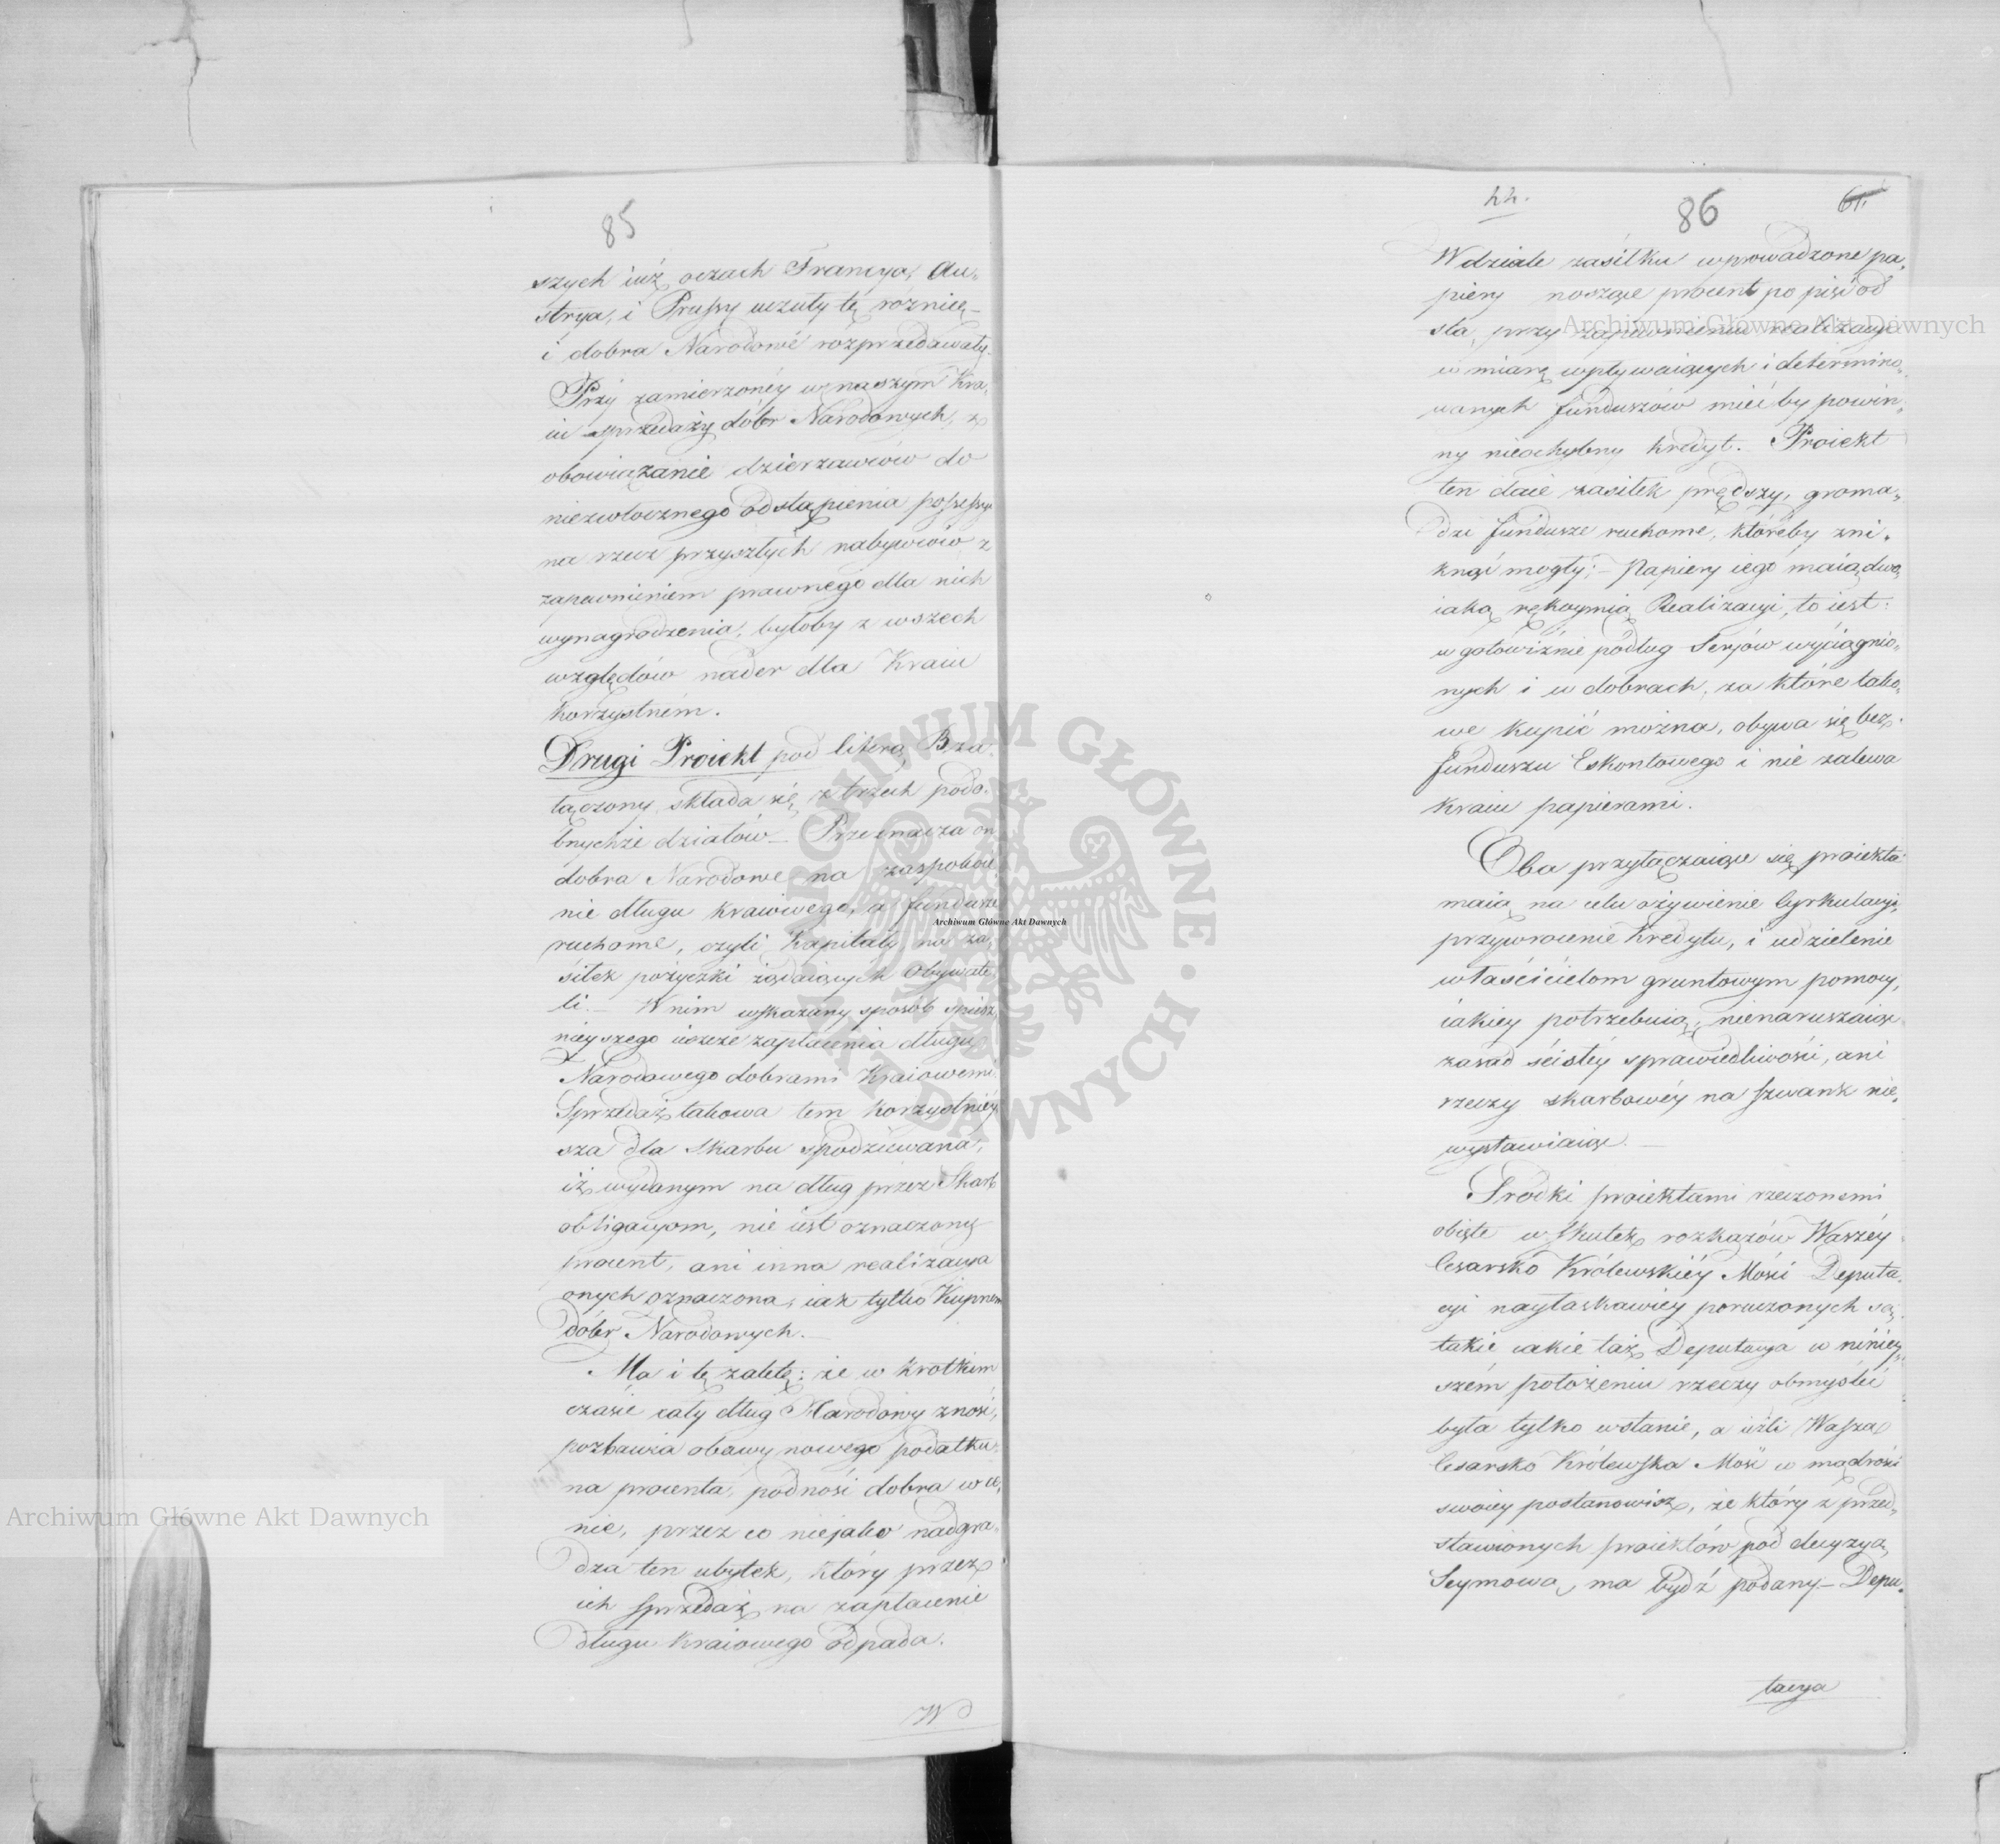 85
szych iuż oczach Francya, Au,,
strya, i Prussy uczuły tę różnicę
i dobra Narodowe rozprzedawały.
Przy zamierzonéy w naszym Kra,,
iu sprzedaży dóbr Narodowych, z
obowiązanie dzierzawców do
niezwłocznego odstąpienia possessyi
na rzecz przyszłych nabywców z
zapewnieniem prawnego dla nich
wynagrodzenia, byłoby z wszech
względów nader dla Kraiu
korzystném.
Drugi Proiekt pod literą B za,,
łączony składa się z trzech podo,,
bnychże działów – Przeznacza on
dobra Narodowe na zaspokoie,,
nie długu kraiowego, a fundusze
ruchome, czyli Kapitały na za,,
siłek pożyczki żądaiących Obywate,,
li. – W nim wskazany sposób spiesz,,
nieyszego ieszcze zapłacenia długu
Narodowego dobrami Kraiowemi.
Sprzedaż takowa tem korzystniéy,,
sza dla skarbu spodziewana,
iż wydanym na dług przez Skarb
obligacyom, nie iest oznaczony
procent, ani inna realizacya
onych oznaczona, iak tylko Kupnem
dóbr Narodowych. –
Ma i tę zaletę: że w krotkim
czasie cały dług Narodowy znosi,
pozbawia obawy nowego podatku
na procenta, podnosi dobra w ce,,
nie, przez co niejako nadgra,,
dza ten ubytek, który przez
ich sprzedaż na zapłacenie
długu kraiowego odpada.
W
44.
86
61.
W dziale zasiłku wprowadzone pa,,
piery noszące procent po pięć od
sta, przy zapewnieniu realizacyi
w miarę wpływaiących i determino,,
wanych funduszów miećby powin,,
ny niechybny kredyt. Proiekt
ten daie zasiłek prędszy, groma,,
dzi fundusze ruchome, któreby zni,,
knąć mogły; – Papiery iego maią dwo,,
iaką rękoymią Realizacyi, to iest:
w gotowiźnie podług Seryów wyciągnio,,
nych i w dobrach, za które tako,,
we kupić można, obywa się bez
funduszu Eskontowego i nie zalewa
kraiu papierami.
Oba przyłączaiące się proiekta
maią na celu ożywienie Cyrkulacyi,
przywrocenie Kredytu, i udzielenie
właścicielom gruntowym pomocy,
iakiey potrzebuią, nienaruszaiąc
zasad ścisłéy sprawiedliwości, ani
rzeczy skarbowéy na szwank nie,,
wystawiaiąc. –
Srodki proiektami rzeczonemi
obięte w skutek rozkazów Waszéy
Cesarsko Królewskiéy Mości Deputa,,
cyi nayłaskawiey poruczonych są
takie iakie taż Deputacya w niniey,,
szém położeniu rzeczy obmyśleć
była tylko wstanie, a ieźli Wasza
Cesarsko Królewska Mość w mądrości
swoiey postanowisz, że który z przed,,
stawionych proiektów pod decyzyą
Seymową ma bydź podany – Depu,,
tacya
Archiwum Główne Akt Dawnych
Archiwum Główne Akt Dawnych
Archiwum Główne Akt Dawnych
ARCHIWUM GŁÓWNE AKT DAWNYCH